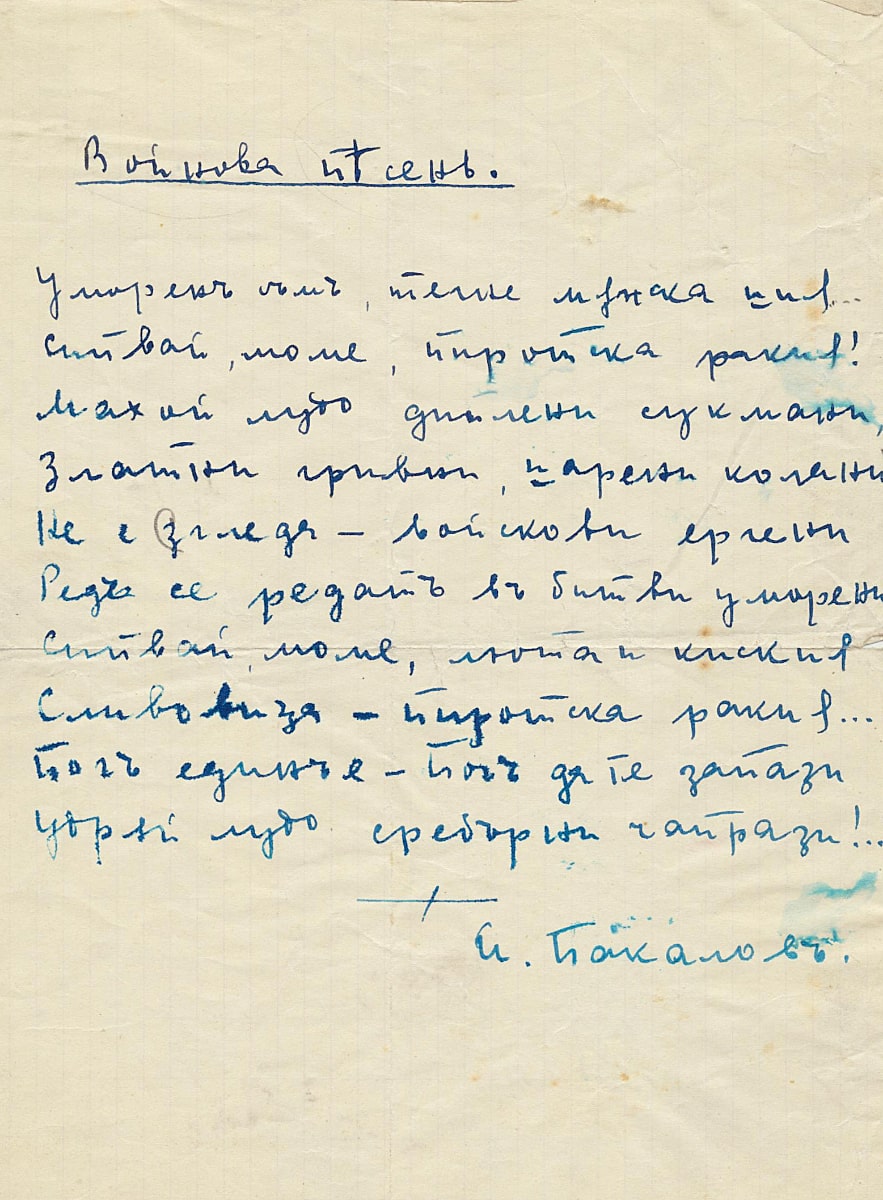 Войнова пѣсень.
Уморенъ съмъ, тегне мѫжка шия...
Сипвай, моме, пиротска ракия!
Махай лудо диплени сукмани,
Златни гривни, шарени колани
Не е згледа — войскови ергени
Редъ се редатъ въ битви уморени
Сипвай, моме, люта и киския
Сливовица — пиротска ракия...
Богъ единъ е — Богъ да те запази
Удряй лудо сребърни чапрази!..
И. Бакаловъ.